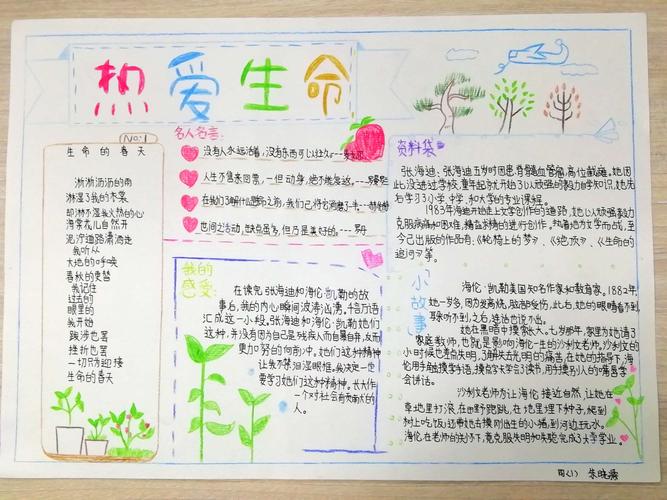 热爱生命
NO:1
生命的春天
淅淅沥沥的雨
淋湿了我的衣裳
却淋不湿我火热的心
海棠花儿自然开
泥泞道路潇洒走
我听从
大地的呼唤
春秋的变替
我记住
过去的
眼里的
我开始
跋涉也罢
挫折也罢
一切只为迎接
生命的春天
名人名言:
没有人永远活着,没有东西可以经久
人生不售来回票,一但动身,绝不能复返。
在我们了解什么是生命之前,我们已将它消磨了一半。
世间之活动,缺点虽多,但乃是美好的。
我的感受:
在读完张海迪和海伦·凯勒的故
事后,我的内心瞬间波涛汹涌,千言万语
汇成这一小段,张海迪和海伦·凯勒她们
这种,并没有因为自己是残疾人而自暴自弃,反而
更加努力的向前冲。她们这种精神
让我不禁泪湿眼眶,我决定一定
要学习她们这种精神。长大作
一个对社会有贡献大的
人。
资料袋
张海迪:张海迪五岁时因患脊髓血管瘤,高位截瘫,她因
此没进过学校,童年起就开始了以顽强的毅力自学知识,她先
后学习了小学、中学、和大学的专业课程。
1983年海迪开始走上文学创作的道路,她以顽强毅力
克服病痛和困难,精益求精的进行创作,执着地为文学而战,至
今已出版的作品有:《轮椅上的梦》、《绝顶》、《生命的
追问》等。
小故事
海伦·凯勒美国知名作家和教育家,1882年,
她一岁多,因为发高烧,脑部受伤,此后,她的眼睛看不到,
耳听不到,之后,连话也说不出。
她在黑暗中摸索长大。七岁那年,家里为她请了
家庭教师,也就是影响海伦一生的沙利文老师,沙利文的
小时候也差点失明,了解失去光明的痛苦,在她的指导下,海
伦用手触摸学手语,摸点字卡学会了读书,用手摸别人的嘴唇学
会讲话。
沙利文老师为让海伦接近自然,让她在
草地里打滚,在田野跑跳,在地里埋下种子,爬到
树上吃饭;还带她去摸刚出生的小猪,到河边玩水。
海伦,在老师的关怀下,竟克服失明和失聪完成了大学学业。
四(1) 朱晓